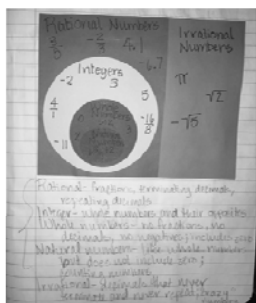 Rational Numbers
Irrational
Numbers
-2/3
4.1
-6.7
Integers
-2
3
5
4/1
-11
Whole
Numbers
π
√2
-√5
Rational - fractions, terminating decimals,
repeating decimals
Integer - whole numbers and their opposites
Whole numbers - no fractions, no
decimals, no negatives, includes zero
Natural numbers - like whole numbers
but does not include zero;
counting numbers
Irrational - decimals that never
terminate and never repeat, crazy